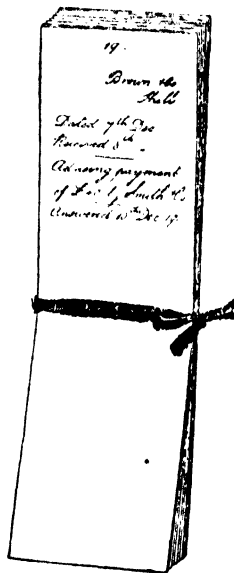 19 .
Brown &
Dated 7th Dec
Received 8th "
Advising payment
of by Smith & Co
Answered 10th Dec 19